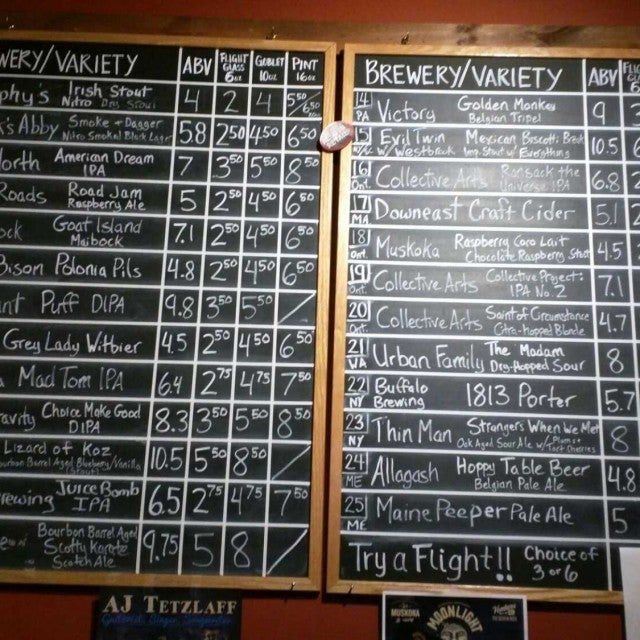 WERY/VARIETY ABV FLIGHT GLASS 6oz GOBLET 10oz PINT 16oz
phy's Irish Stout 4 2 4 5⁵⁰/6⁵⁰
Nitro Dry Stout
s Abby Smoke + Dagger 5.8 2⁵⁰ 4⁵⁰ 6⁵⁰
Nitro Smoked Black Lager
orth American Dream IPA 7 3⁵⁰ 5⁵⁰ 8⁵⁰
Roads Road Jam 5 2⁵⁰ 4⁵⁰ 6⁵⁰
Raspberry Ale
ock Goat Island 7.1 2⁵⁰ 4⁵⁰ 6⁵⁰
Maibock
Bison Polonia Pils 4.8 2⁵⁰ 4⁵⁰ 6⁵⁰
nt Puff DIPA 9.8 3⁵⁰ 5⁵⁰ /
Grey Lady Witbier 4.5 2⁵⁰ 4⁵⁰ 6⁵⁰
Mad Tom IPA 6.4 2⁷⁵ 4⁷⁵ 7⁵⁰
ravity Choice Make Good 8.3 3⁵⁰ 5⁵⁰ 8⁵⁰
DIPA
Lizard of Koz 10.5 5⁵⁰ 8⁵⁰ /
ourbon Barrel Aged Blueberry/Vanilla
Stout
rewing Juice Bomb 6.5 2⁷⁵ 4⁷⁵ 7⁵⁰
IPA
Bourbon Barrel Aged 9.75 5 8 /
Scotty Karate
Scotch Ale
BREWERY/VARIETY ABV
14 PA Victory Golden Monkey 9
Belgian Tripel
15 Evil Twin Mexican Biscotti Break 10.5
w/ Westbrook Imp. Stout w/ Everything
16 Ont. Collective Arts Ransack the 6.8
Universe IPA
17 MA Downeast Craft Cider 5.1
18 Ont. Muskoka Raspberry Coco Lait 4.5
Chocolate Raspberry Stout
19 Ont. Collective Arts Collective Project: 7.1
IPA No. 2
20 Ont. Collective Arts Saint of Circumstance 4.7
Citra-Hopped Blonde
21 VA Urban Family The Madam 8
Dry-Hopped Sour
22 NY Buffalo Brewing 1813 Porter 5.7
23 NY Thin Man Strangers When We Met 8
Oak Aged Sour Ale w/ Plums + Tart Cherries
24 ME Allagash Hoppy Table Beer 4.8
Belgian Pale Ale
25 ME Maine Peeper Pale Ale 5
Try a Flight!! Choice of
3 or 6
AJ TETZLAFF
Guitarist, Singer, Songwriter
MUSKOKA
MOONLIGHT